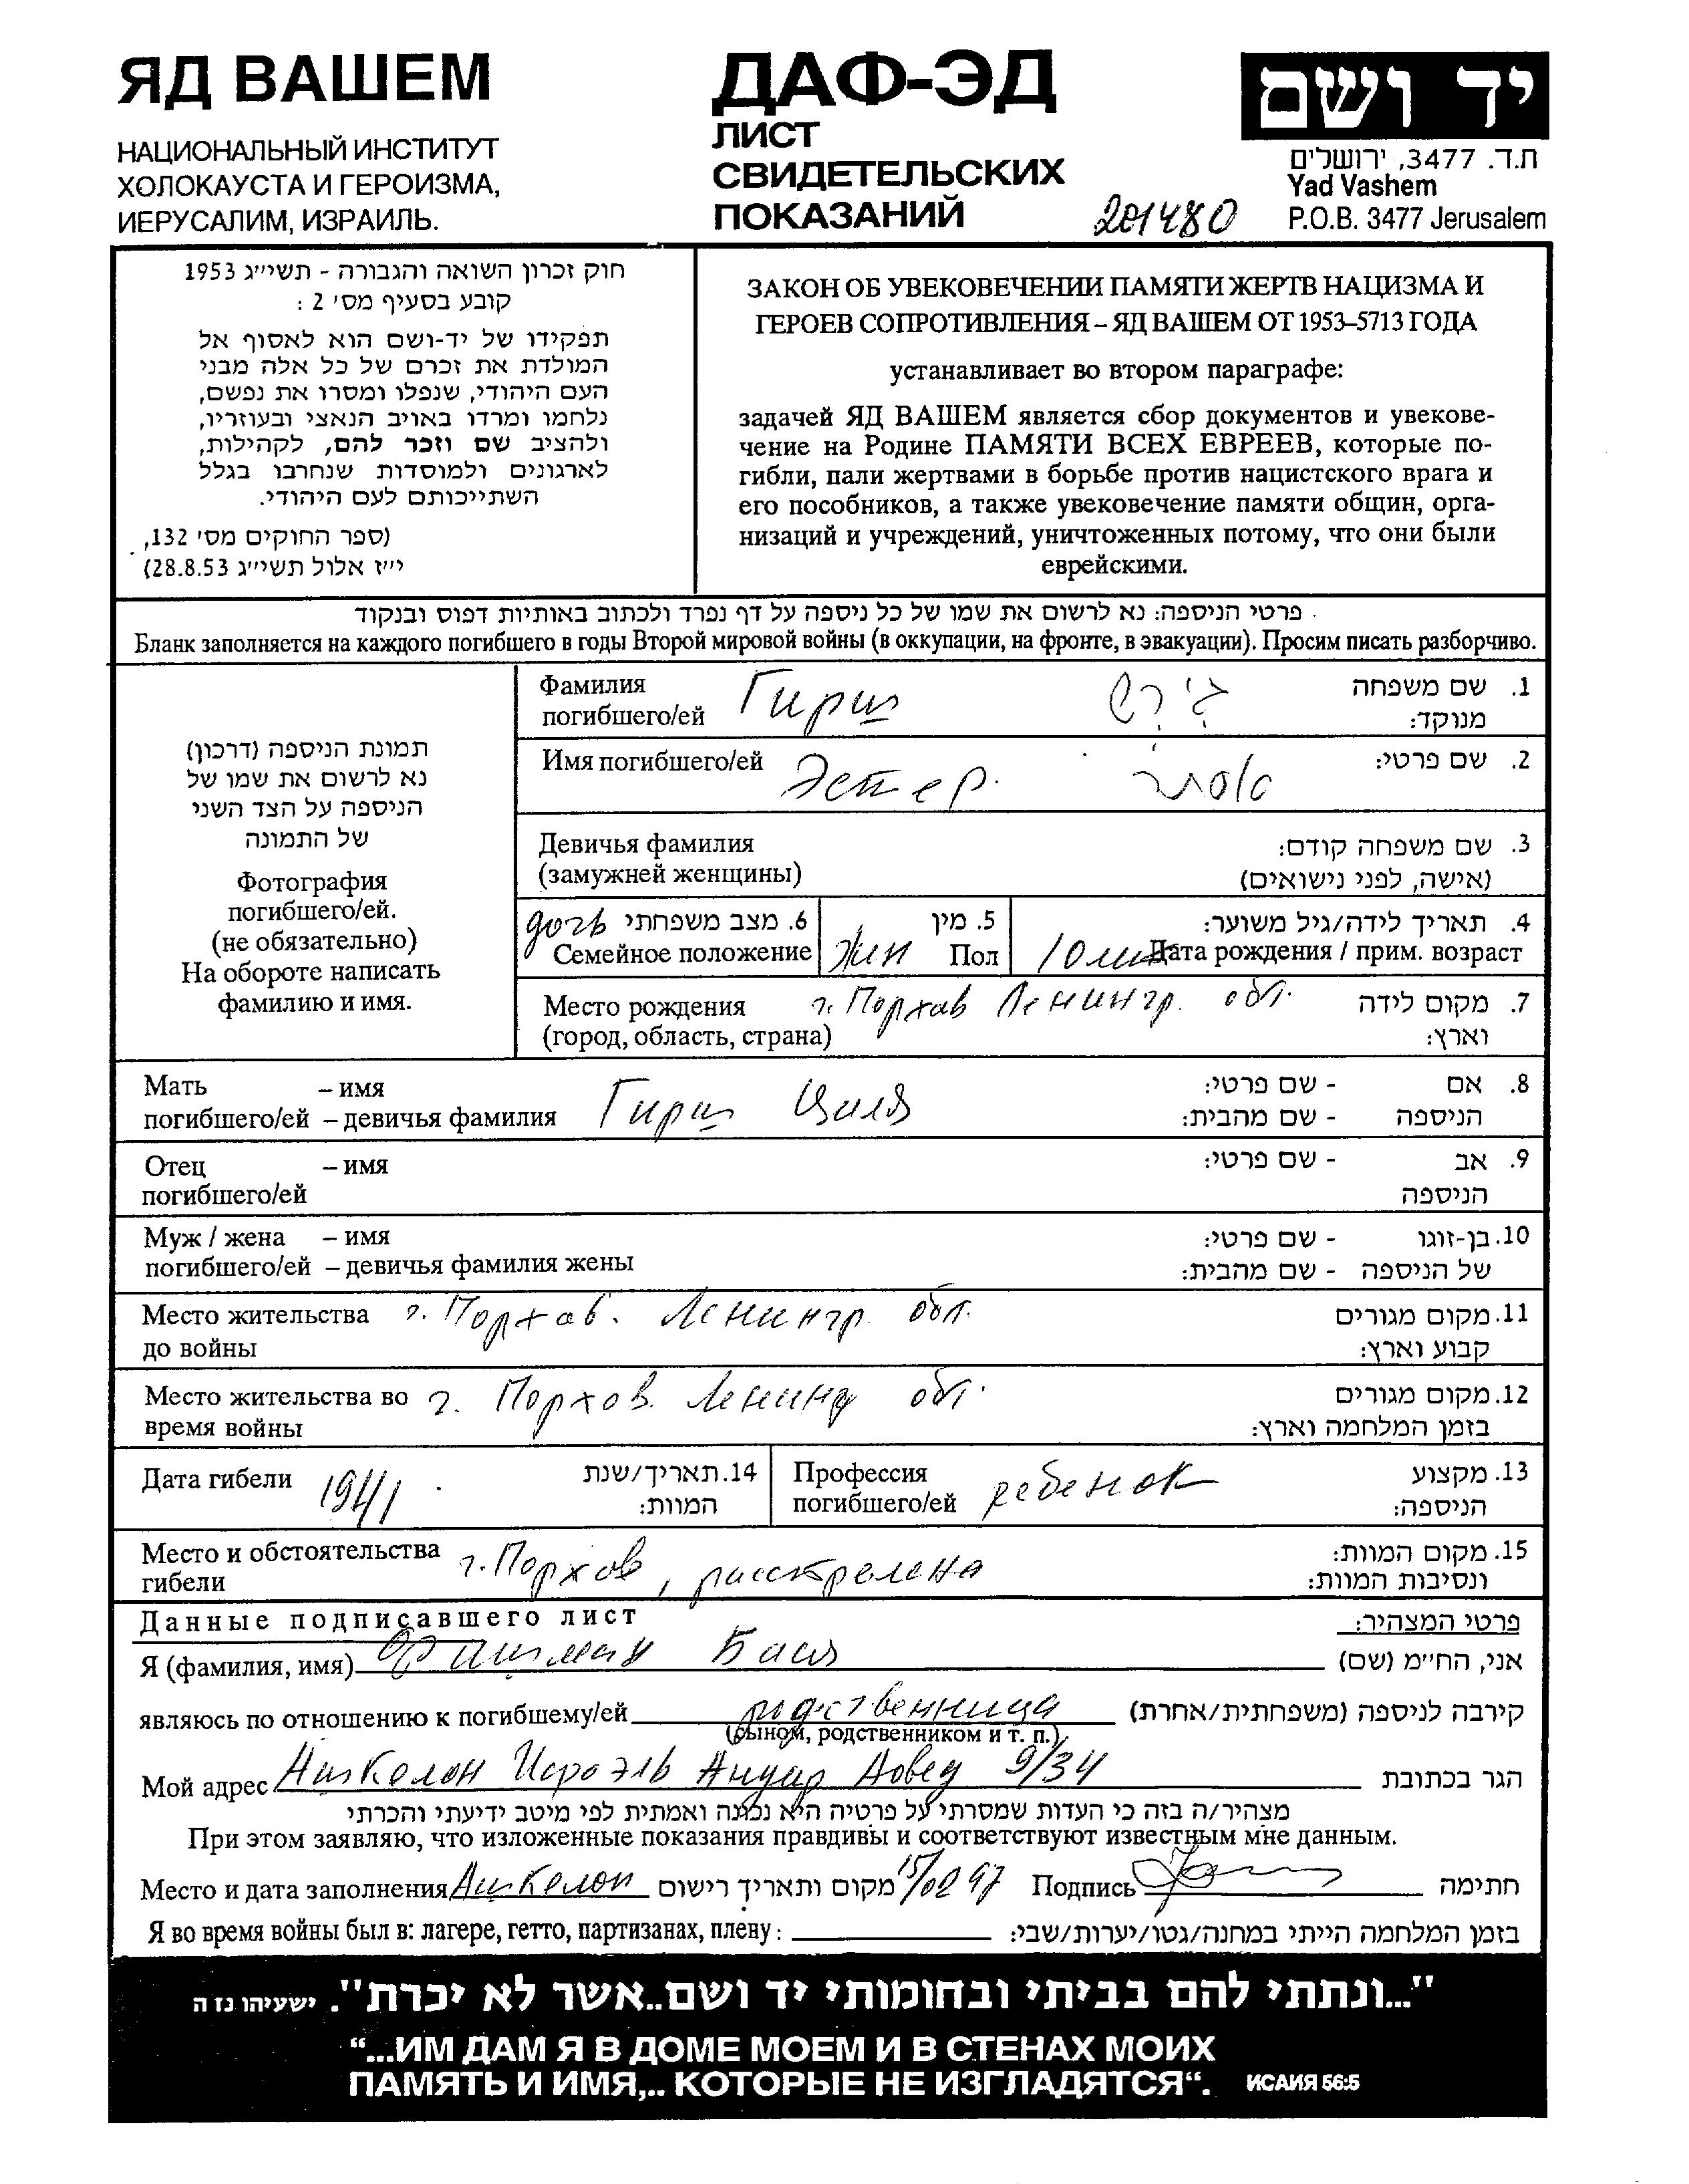 ЯД ВАШЕМ
НАЦИОНАЛЬНЫЙ ИНСТИТУТ
ХОЛОКАУСТА И ГЕРОИЗМА,
ИЕРУСАЛИМ, ИЗРАИЛЬ.
ДАФ-ЭД
ЛИСТ
СВИДЕТЕЛЬСКИХ
ПОКАЗАНИЙ
201480
יד ושם
ת.ד. 3477, ירושלים
Yad Vashem
P.O.B. 3477 Jerusalem
חוק זכרון השואה והגבורה - תשי״ג 1953
קובע בסעיף מס׳ 2 :
תפקידו של יד-ושם הוא לאסוף אל
המולדת את זכרם של כל אלה מבני
העם היהודי, שנפלו ומסרו את נפשם,
נלחמו ומרדו באויב הנאצי ובעוזריו,
ולהציב שם וזכר להם, לקהילות,
לארגונים ולמוסדות שנחרבו בגלל
השתייכותם לעם היהודי.
(ספר החוקים מס׳ 132,
י״ז אלול תשי״ג 28.8.53)
ЗАКОН ОБ УВЕКОВЕЧЕНИИ ПАМЯТИ ЖЕРТВ НАЦИЗМА И
ГЕРОЕВ СОПРОТИВЛЕНИЯ – ЯД ВАШЕМ ОТ 1953–5713 ГОДА
устанавливает во втором параграфе:
задачей ЯД ВАШЕМ является сбор документов и увекове-
чение на Родине ПАМЯТИ ВСЕХ ЕВРЕЕВ, которые по-
гибли, пали жертвами в борьбе против нацистского врага и
его пособников, а также увековечение памяти общин, орга-
низаций и учреждений, уничтоженных потому, что они были
еврейскими.
פרטי הניספה: נא לרשום את שמו של כל ניספה על דף נפרד ולכתוב באותיות דפוס ובנקוד .
Бланк заполняется на каждого погибшего в годы Второй мировой войны (в оккупации, на фронте, в эвакуации). Просим писать разборчиво.
תמונת הניספה (דרכון)
נא לרשום את שמו של
הניספה על הצד השני
של התמונה
Фотография
погибшего/ей.
(не обязательно)
На обороте написать
фамилию и имя.
Фамилия Гирш גירש 1. שם משפחה
погибшего/ей מנוקד:
Имя погибшего/ей Эстер. אסתר 2. שם פרטי:
Девичья фамилия 3. שם משפחה קודם:
(замужней женщины) (אישה, לפני נישואים)
дочь 6. מצב משפחתי 5. מין 4. תאריך לידה/גיל משוער:
Семейное положение жен Пол 10 лет Дата рождения / прим. возраст
Место рождения г. Порхав Ленингр. обл. 7. מקום לידה
(город, область, страна) וארץ:
Мать – имя Гирш Циля 8. אם - שם פרטי:
погибшего/ей – девичья фамилия הניספה - שם מהבית:
Отец – имя 9. אב - שם פרטי:
погибшего/ей הניספה
Муж / жена – имя 10. בן-זוגו - שם פרטי:
погибшего/ей – девичья фамилия жены של הניספה - שם מהבית:
Место жительства г. Порхав. Ленингр. обл. 11. מקום מגורים
до войны קבוע וארץ:
Место жительства во г. Порхов. Ленинг обл. 12. מקום מגורים
время войны בזמן המלחמה וארץ:
Дата гибели 1941. 14. תאריך/שנת המוות:
Профессия погибшего/ей ребенок 13. מקצוע הניספה:
Место и обстоятельства г. Порхов, расстрелена 15. מקום המוות:
гибели ונסיבות המוות:
Данные подписавшего лист פרטי המצהיר:
Я (фамилия, имя) Фаишман Бася אני, החי״מ (שם)
являюсь по отношению к погибшему/ей родственница קירבה לניספה (משפחתית/אחרת)
(сыном, родственником и т. п.)
Мой адрес Ашкелон Исроэль Андер Довед 9/34 הגר בכתובת
מצהיר/ה בזה כי העדות שמסרתי על פרטיה היא נכונה ואמתית לפי מיטב ידיעתי והכרתי
При этом заявляю, что изложенные показания правдивы и соответствуют известным мне данным.
Место и дата заполнения Ашкелон מקום ותאריך רישום 15/02 97 Подпись חתימה
Я во время войны был в: лагере, гетто, партизанах, плену : בזמן המלחמה הייתי במחנה/גטו/יערות/שבי:
"...ונתתי להם בביתי ובחומותי יד ושם..אשר לא יכרת". ישעיהו נז ה
“...ИМ ДАМ Я В ДОМЕ МОЕМ И В СТЕНАХ МОИХ
ПАМЯТЬ И ИМЯ,.. КОТОРЫЕ НЕ ИЗГЛАДЯТСЯ“. ИСАИЯ 56:5